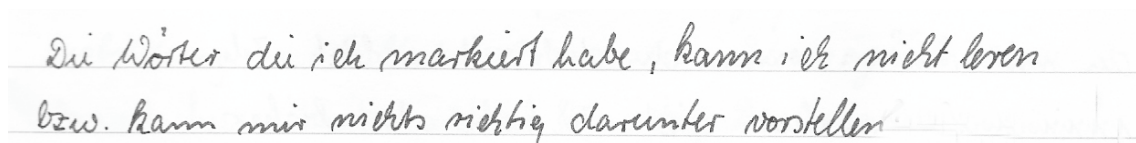 Die Wörter die ich markiert habe, kann ich nicht lesen
bzw. kann mir nichts richtig darunter vorstellen